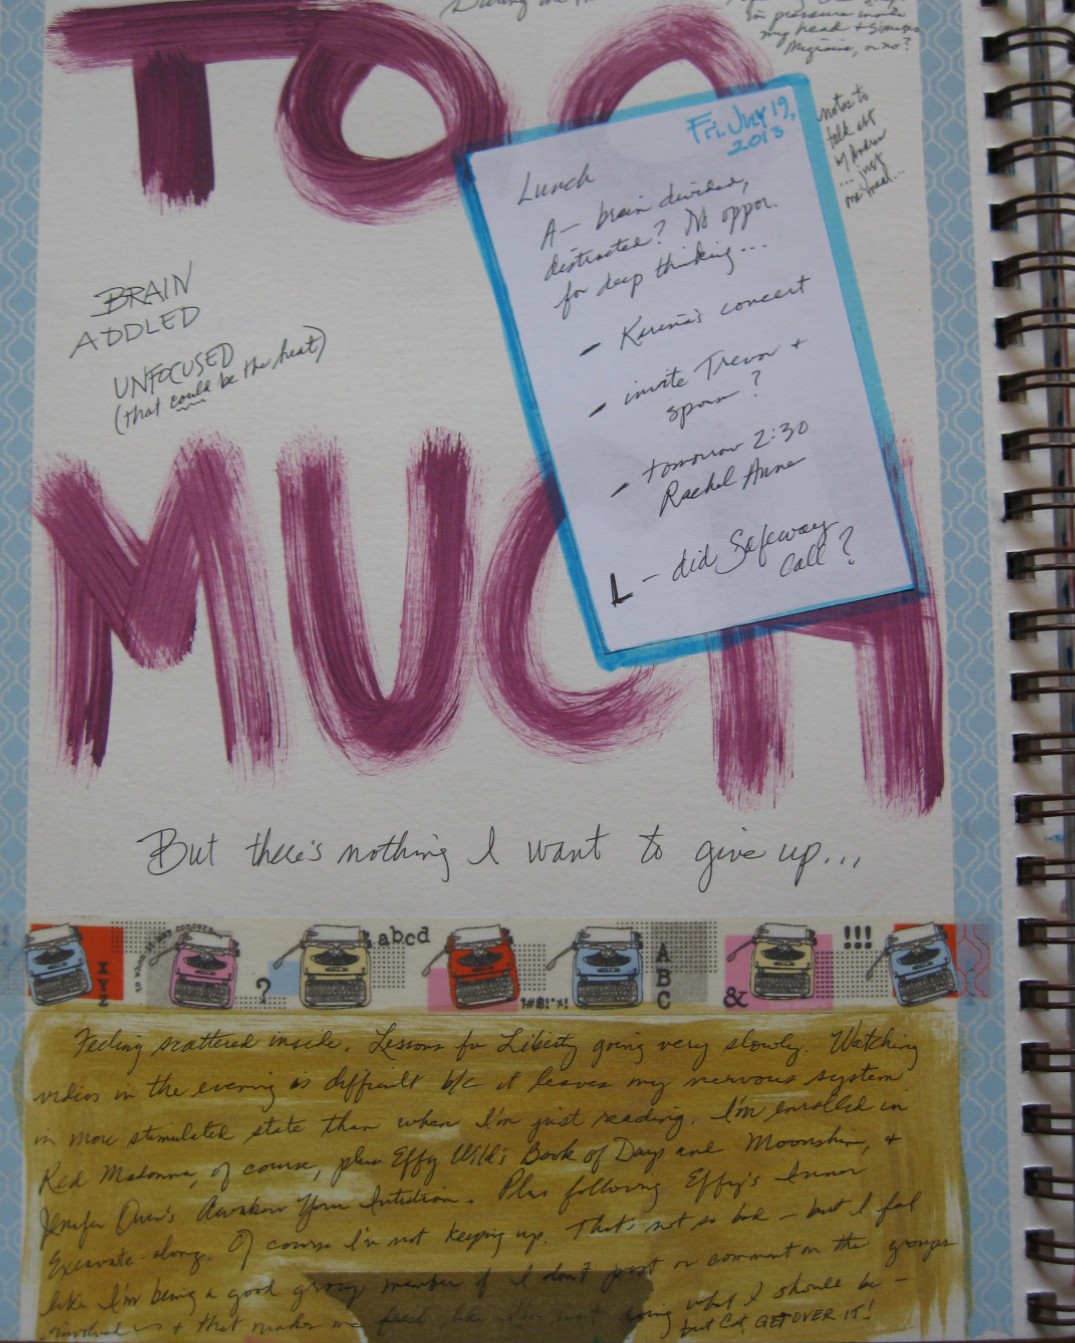 TOO
in pressure inside
my head + sinuses
Migraine, or no?
notes to
talk abt
w/ Andrea
... just
one meal...
Fri. July 19,
2013
Lunch
A- brain divided,
distracted? No oppor.
for deep thinking...
- Karina's concert
- invite Trevor +
spouse?
- tomorrow 2:30
Rachel Anne
L - did Safeway
Call?
BRAIN
ADDLED
UNFOCUSED
(that could be the heat)
MUCH
But there's nothing I want to give up...
XYZ
to whom it may concern
?
abcd
!%#$!*!
A
B
C
&
!!!
Feeling scattered inside. Lessons for Liberty going very slowly. Watching
videos in the evening is difficult b/c it leaves my nervous system
in more stimulated state than when I'm just reading. I'm enrolled in
Red Madonna, of course, plus Effy Wild's Book of Days and Moonshine, +
Jenifer Awakow Your Intuition. Plus following Effy's Inner
Excavate-along. Of course I'm not keeping up. That's not so bad - but I feel
like I'm being a good group member if I don't post or comment on the groups
involved + that makes me feel like I'm not doing what I should be -
but Cat GET OVER IT!